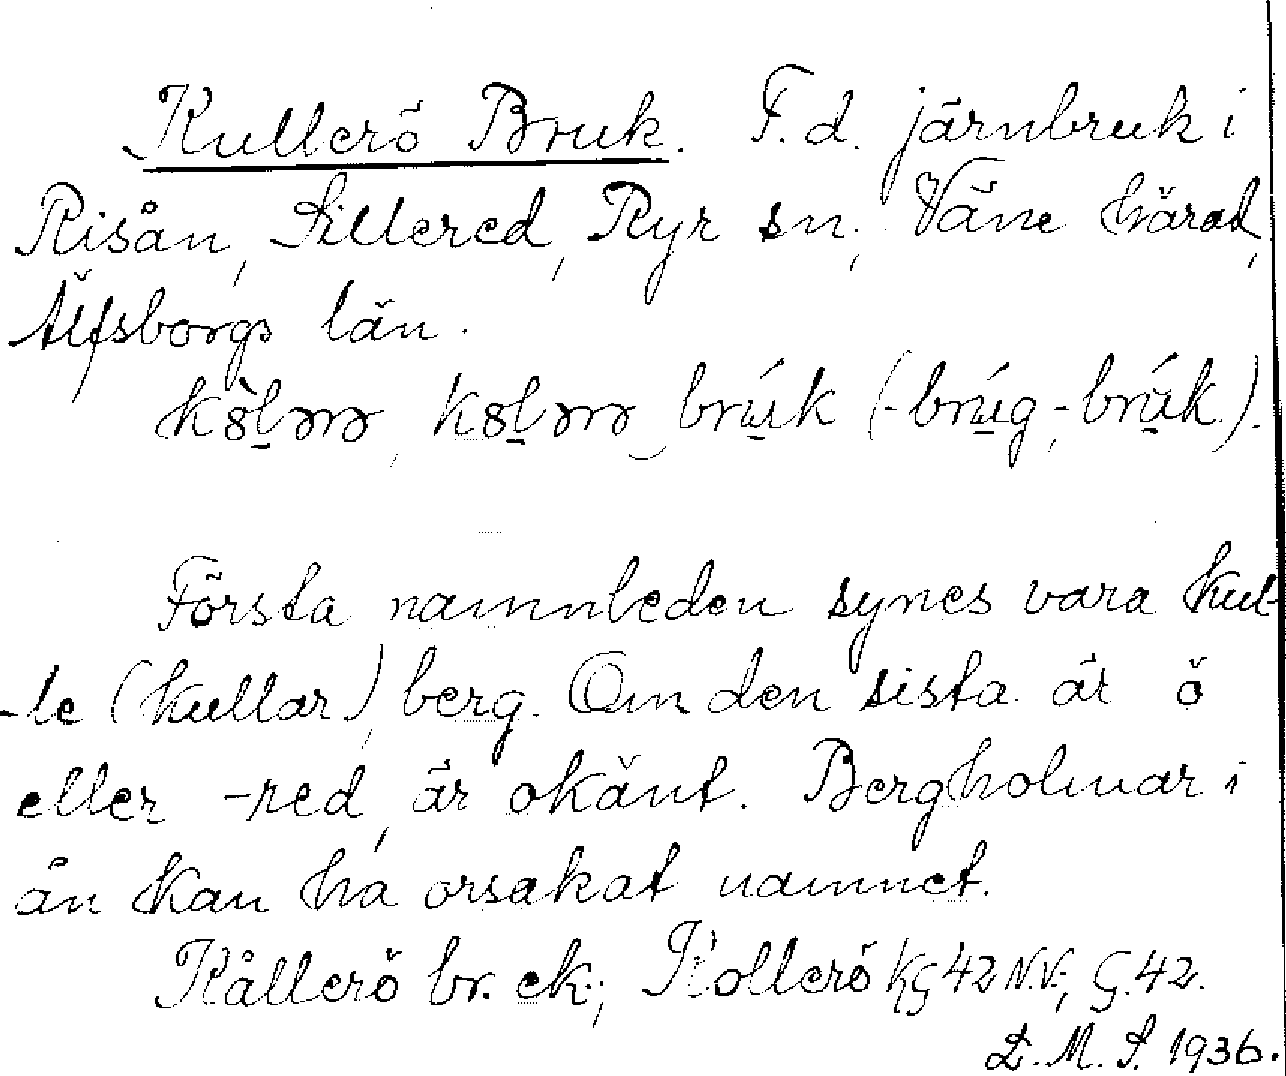 Kullerö Bruk. F.d. järnbruk i
Risån, Sillered, Ryr sn; Väne härad,
Älfsborgs län.
Första namnleden synes vara kul-
-le (kullar), berg. Om den sista är ö
eller -red, är okänt. Bergholmar i
ån kan ha orsakat namnet.
Kållerö br. ek.; Kollerö KG 42 N.V.; G. 42.
D. M. S. 1936.